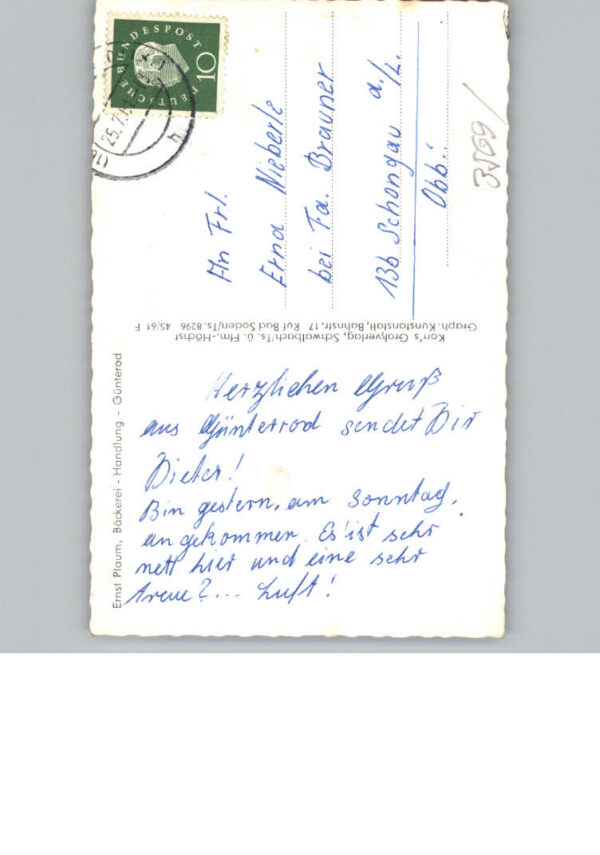 Herzlichen Gruß
aus Günterrod sendet Dir
Dieter!
Bin gestern, am Sonntag,
angekommen. Es ist sehr
nett hier und eine sehr
treue?... Luft!
An Frl.
Erna Nieberle
bei Fa. Brauner
13b Schongau a./L.
Obb.:
3569/
DEUTSCHE BUNDESPOST
10
25.7.
h
Karr's Großverlag, Schwalbach/Ts. ü. Ffm.-Höchst
Graph. Kunstanstalt, Bahnstr. 17 Ruf Bad Soden/Ts. 8296 45/61 F
Ernst Plaum, Bäckerei - Handlung - Günterod